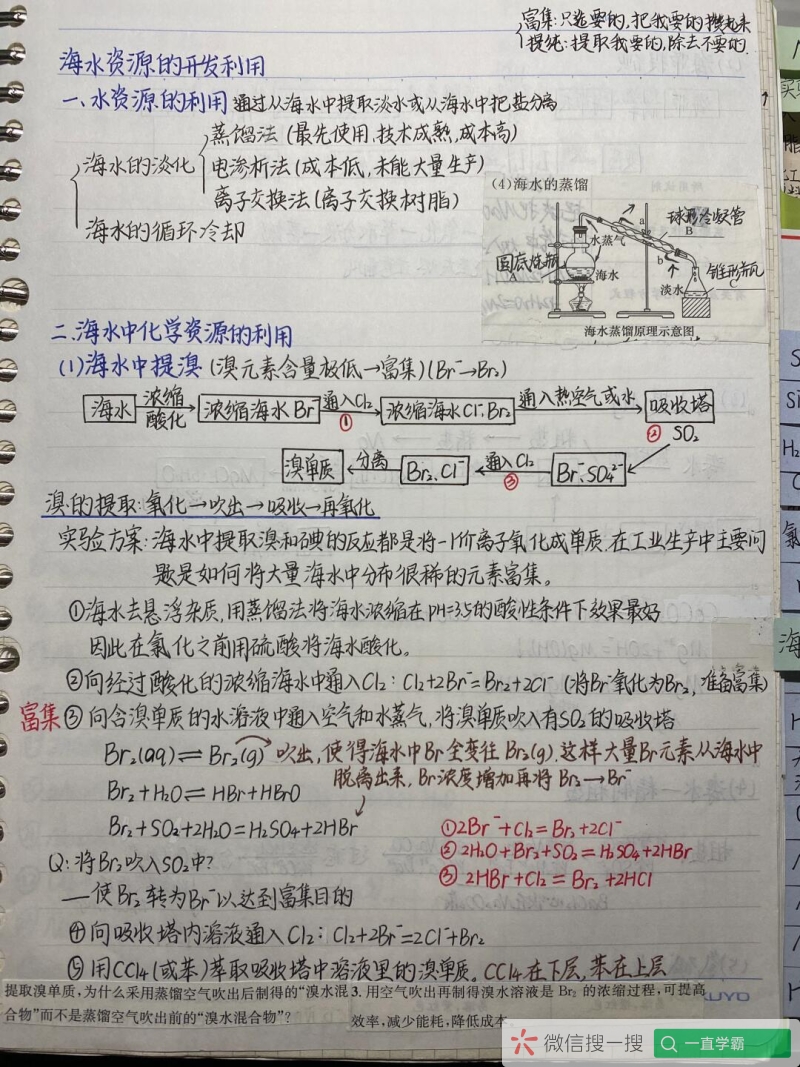 富集:只选要的,把我要的攒起来
提纯:提取我要的,除去不要的
海水资源的开发利用
一、水资源的利用 通过从海水中提取淡水或从海水中把盐分离
海水的淡化
蒸馏法(最先使用,技术成熟,成本高)
电渗析法(成本低,未能大量生产)
离子交换法(离子交换树脂)
海水的循环冷却
(4)海水的蒸馏
球形冷凝管
a
B
水蒸气
圆底烧瓶
A
海水
b
锥形瓶
C
淡水
海水蒸馏原理示意图
二.海水中化学资源的利用
(1)海水中提溴(溴元素含量极低→富集)(Br⁻→Br₂)
海水 浓缩 酸化→ 浓缩海水Br⁻ 通入Cl₂ ①→ 浓缩海水Cl⁻.Br₂ 通入热空气或水→ 吸收塔
② SO₂
溴单质 ←分离 Br₂.Cl⁻ ←通入Cl₂ ③ Br⁻.SO₄²⁻
溴的提取:氧化→吹出→吸收→再氧化
实验方案:海水中提取溴和碘的反应都是将-1价离子氧化成单质.在工业生产中主要问
题是如何将大量海水中分布很稀的元素富集。
①海水去悬浮杂质,用蒸馏法将海水浓缩在PH=3.5的酸性条件下效果最好
因此在氯化之前用硫酸将海水酸化。
②向经过酸化的浓缩海水中通入Cl₂:Cl₂+2Br⁻=Br₂+2Cl⁻(将Br⁻氧化为Br₂,准备富集)
富集③向含溴单质的水溶液中通入空气和水蒸气,将溴单质吹入有SO₂的吸收塔
Br₂(aq)⇌Br₂(g) 吹出,使得海水中Br全变往Br₂(g).这样大量Br元素从海水中
脱离出来,Br浓度增加再将Br₂→Br⁻
Br₂+H₂O⇌HBr+HBrO
Br₂+SO₂+2H₂O=H₂SO₄+2HBr
①2Br⁻+Cl₂=Br₂+2Cl⁻
②2H₂O+Br₂+SO₂=H₂SO₄+2HBr
③2HBr+Cl₂=Br₂+2HCl
Q:将Br₂吹入SO₂中?
——使Br₂转为Br⁻以达到富集目的
④向吸收塔内溶液通入Cl₂:Cl₂+2Br⁻=2Cl⁻+Br₂
⑤用CCl₄(或苯)萃取吸收塔中溶液里的溴单质。CCl₄在下层,苯在上层
提取溴单质,为什么采用蒸馏空气吹出后制得的“溴水混
合物”而不是蒸馏空气吹出前的“溴水混合物”?
3.用空气吹出再制得溴水溶液是Br₂的浓缩过程,可提高
效率,减少能耗,降低成本
微信搜一搜
一直学霸